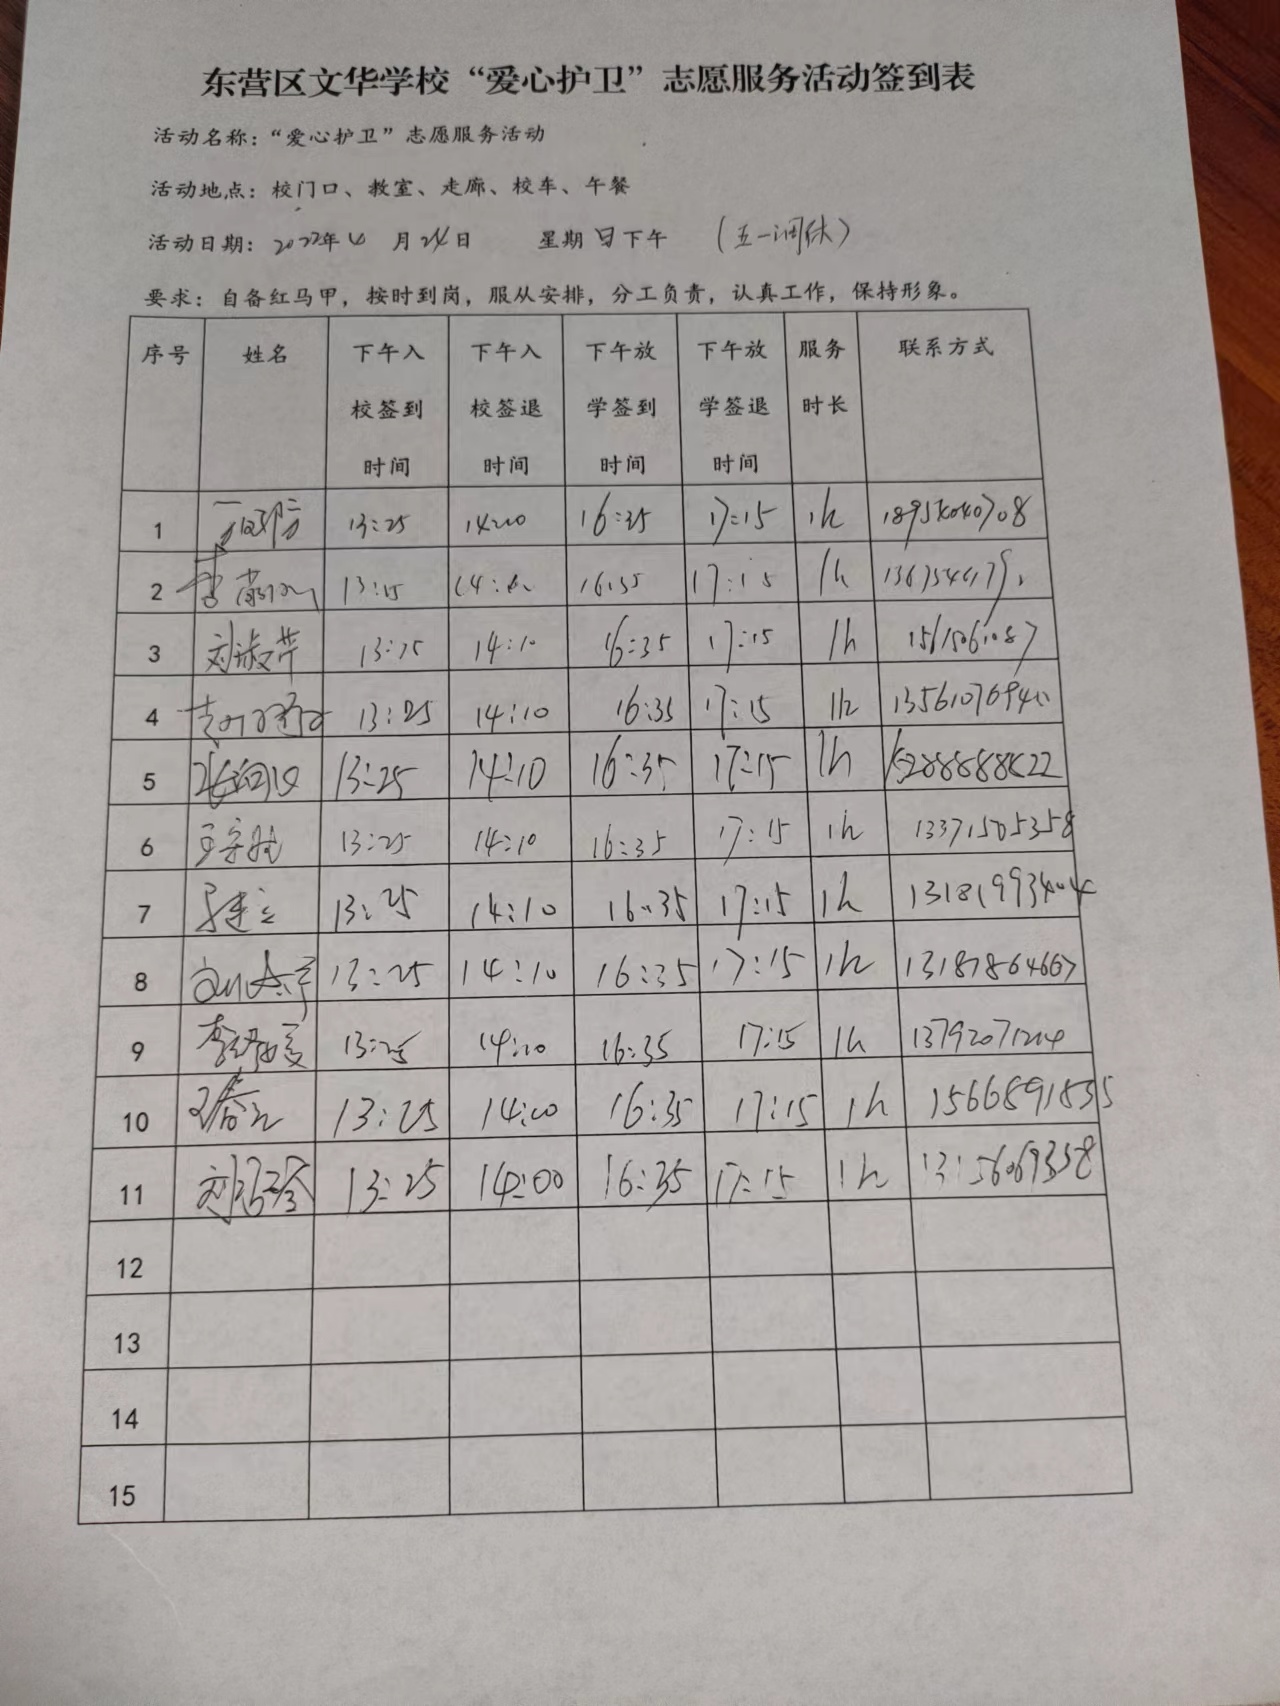 东营区文华学校“爱心护卫”志愿服务活动签到表
活动名称：“爱心护卫”志愿服务活动
活动地点：校门口、教室、走廊、校车、午餐
活动日期：2022年4月24日 星期日下午 （五一调休）
要求：自备红马甲，按时到岗，服从安排，分工负责，认真工作，保持形象。
序号 姓名 下午入校签到时间 下午入校签退时间 下午放学签到时间 下午放学签退时间 服务时长 联系方式
1 13:25 14:00 16:35 17:15 1h
2 13:15 16:35 17:15 1h
3 刘淑芹 13:25 14:10 16:35 17:15 1h
4 13:25 14:10 16:35 17:15 1h
5 13:25 14:10 16:35 17:15 1h
6 13:25 14:10 16:35 17:15 1h 13371505358
7 13:25 14:10 16:35 17:15 1h 13181993404
8 13:25 14:10 16:35 17:15 1h 13187864667
9 13:25 14:10 16:35 17:15 1h 13792071214
10 13:25 14:00 16:35 17:15 1h 15668918535
11 13:25 14:00 16:35 17:15 1h 13156069358
12
13
14
15